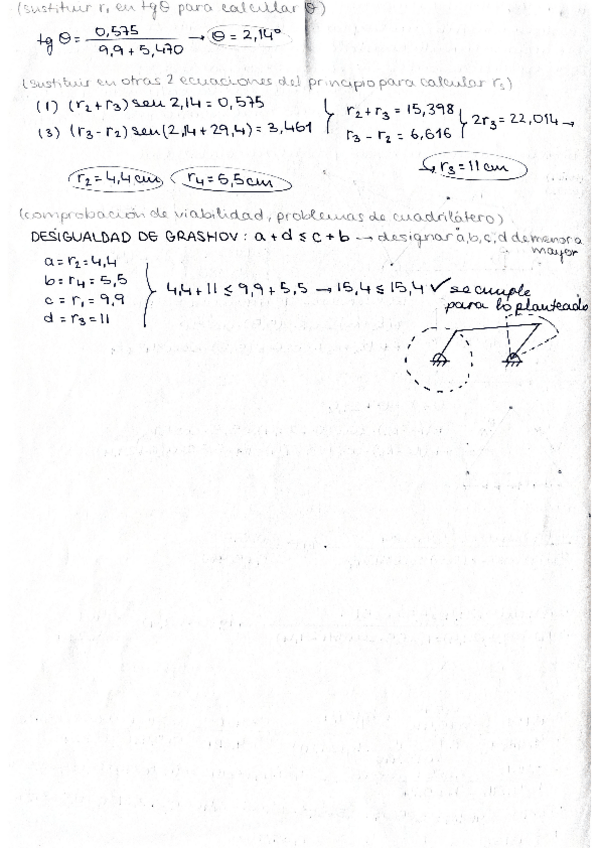 (sustituir r₁ en tgθ para calcular θ)
tg θ = 0,575 / 9,9 + 5,470 → θ = 2,14°
(sustituir en otras 2 ecuaciones del principio para calcular r₃)
(1) (r₂+r₃) seu 2,14 = 0,575
(3) (r₃-r₂) seu (2,14+29,4) = 3,461
r₂+r₃ = 15,398
r₃-r₂ = 6,616
2r₃ = 22,014 →
↳ r₃ = 11 cm
r₂ = 4,4 cm r₄ = 5,5 cm
(comprobación de viabilidad, problemas de cuadrilátero)
DESIGUALDAD DE GRASHOV: a + d ≤ c + b → designar a, b, c, d de menor a
mayor
a = r₂ = 4,4
b = r₄ = 5,5
c = r₁ = 9,9
d = r₃ = 11
4,4 + 11 ≤ 9,9 + 5,5 → 15,4 ≤ 15,4 ✓ se cumple
para lo planteado